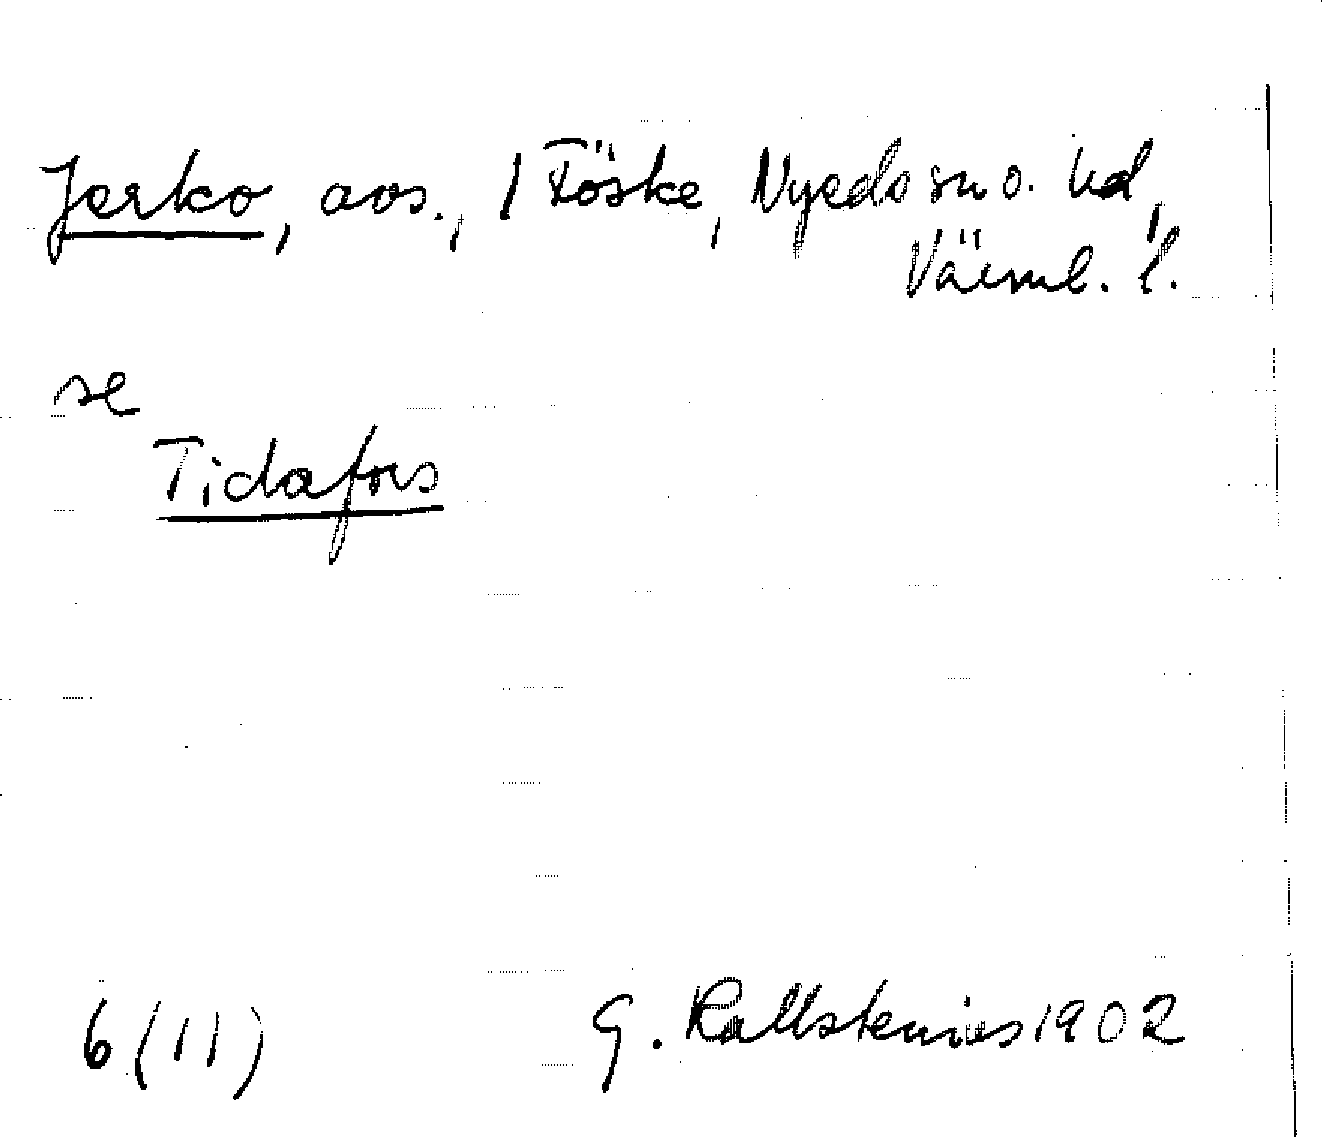 Jerko, avs., 1 Töske, Nyeds sn o. hd,
Värml. l.
se
Tidafors
6 (11) G. Kallstenius 1902